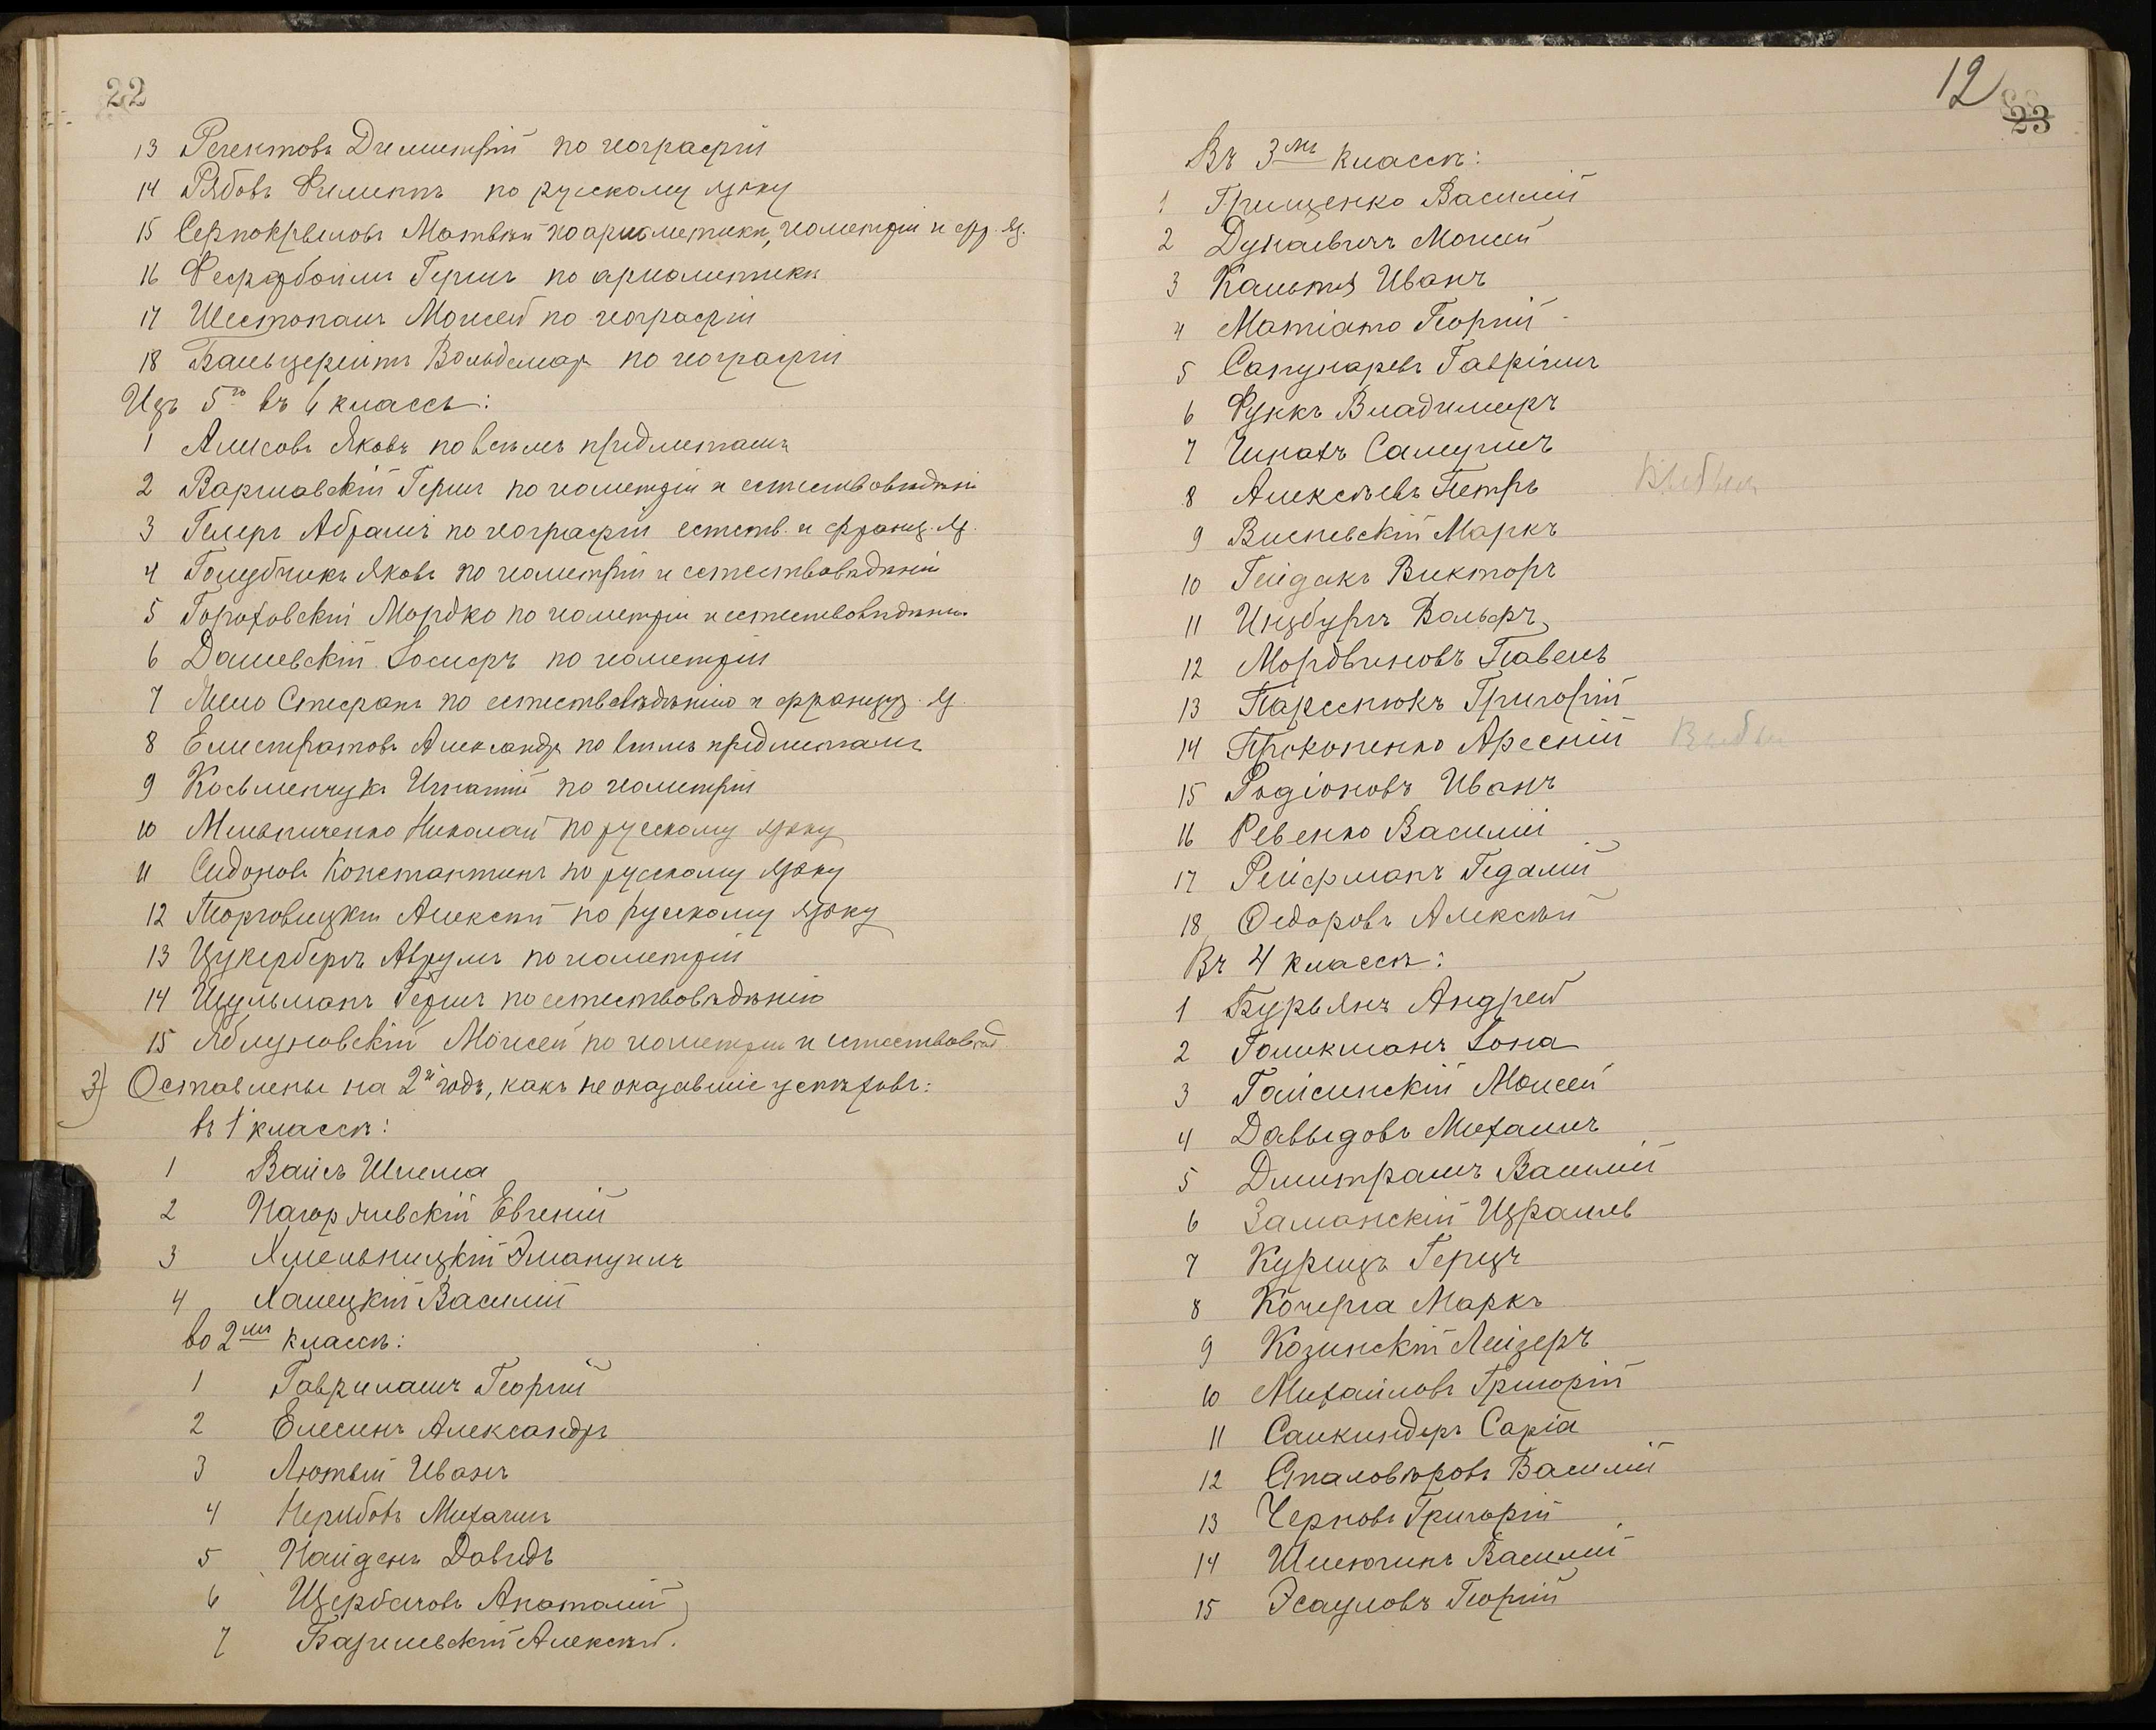 22
13 Регентовъ Димитрій по географіи
14 Рябовъ Филиппъ по русскому языку
15 Сернокрыловъ Матвѣй по ариѳметикѣ, геометріи и фр. яз.
16 Герш по ариѳметикѣ
17 Шестопалъ Моисей по географіи
18 Вольдемаръ по географіи
Изъ 5го въ 6 классъ:
1 Алисовъ Яковъ по всѣмъ предметамъ
2 Варшавскій Гершъ по геометріи и естествовѣдѣнію
3 Гелеръ Абрамъ по географіи естеств. и франц. яз.
4 Голубчикъ Яковъ по геометріи и естествовѣдѣнію
5 Гороховскій Мордко по геометріи и естествовѣдѣнію
6 Дашевскій Іосифъ по геометріи
7 Стефанъ по естествовѣдѣнію и француз. яз.
8 Елистратовъ Александръ по всѣмъ предметамъ
9 Косьменчукъ Игнатій по геометріи
10 Мельниченко Николай по русскому языку
11 Сидоновъ Константинъ по русскому языку
12 Торговицкій Алексѣй по русскому языку
13 Цукербергъ Аврумъ по геометріи
14 Шульманъ Гершъ по естествовѣдѣнію
15 Яблуновскій Моисей по геометріи и естествовѣд
3) Оставлены на 2й годъ, какъ не оказавшіе успѣховъ:
въ 1 классѣ:
1 Вайсъ Шлема
2 Нагорячевскій Евгеній
3 Хмельницкій Эмануилъ
4 Халецкій Василій
во 2мъ классѣ:
1 Гаврилашъ Георгій
2 Елесинъ Александръ
3 Лютый Иванъ
4 Нерубовъ Михаилъ
5 Найденъ Давидъ
6 Щербаковъ Анатолій
7 Барилевскій Алексѣй.
12
23
Въ 3мъ классѣ:
1 Грищенко Василій
2 Дунаевичъ Моисей
3 Калътя Иванъ
4 Матіато Георгій
5 Сапунаревъ Гавріилъ
6 Функъ Владимиръ
7 Самуилъ
8 Алексѣевъ Петръ
Выбылъ
9 Висневскій Маркъ
10 Гейдакъ Викторъ
11 Инцбургъ Вольфъ
12 Мордвиновъ Павелъ
13 Парсенюкъ Григорій
14 Прокопенко Арсеній
Выбылъ
15 Родіоновъ Иванъ
16 Ревенко Василій
17 Рейфманъ Гедалій
18 Ѳедоровъ Алексѣй
Въ 4 классѣ:
1 Бурьянъ Андрей
2 Голикманъ Іона
3 Гайсинскій Моисей
4 Давыдовъ Михаилъ
5 Димитрашъ Василій
6 Заманскій Израиль
7 Курицъ Герцъ
8 Кочерга Маркъ
9 Козинскій Лейзеръ
10 Михайловъ Григорій
11 Салкиндеръ Сарія
12 Староверовъ Василій
13 Черновъ Григорій
14 Шлеюгинъ Василій
15 Эсауловъ Георгій